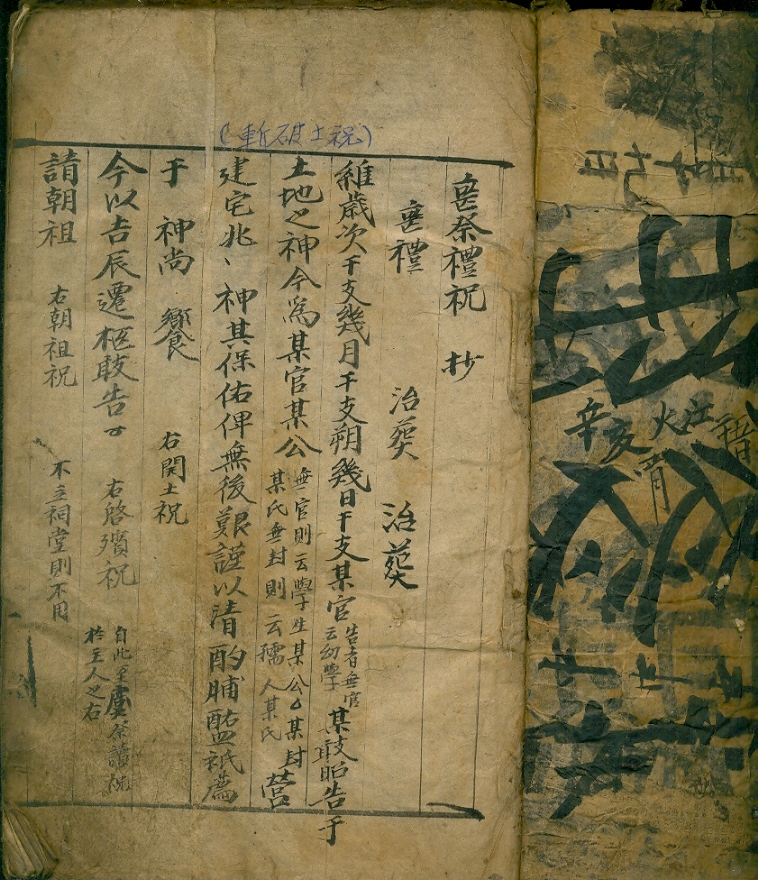 辛亥
(斬破土祝)
喪祭禮祝 抄
喪禮 治葬 治葬
維歲次干支幾月干支朔幾日干支某官 告者無官 云幼學 某敢昭告于
土地之神今爲某官某公 無官則云學生某公某封 某氏無封則云孺人某氏 營
建宅兆、神其保佑俾無後艱謹以清酌脯醢祗薦
于 神尚 饗 右開土祝
今以吉辰遷柩敢告 右啓殯祝 自此至虞祭讀祝 於主人之右
請朝祖 右朝祖祝 不立祠堂則不用